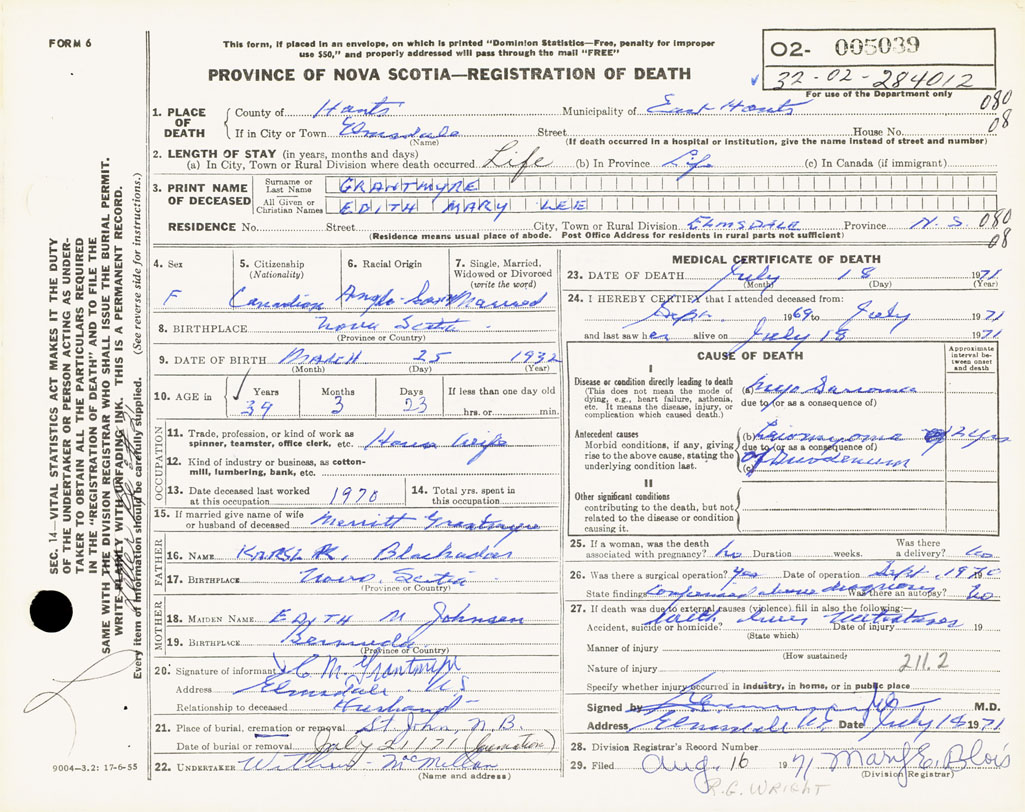 FORM 6
This form, if placed in an envelope, on which is printed "Dominion Statistics—Free, penalty for improper
use $50," and properly addressed will pass through the mail "FREE"
PROVINCE OF NOVA SCOTIA—REGISTRATION OF DEATH
O2- 005039
32-02-284012
For use of the Department only
080
08
1. PLACE OF DEATH
County of Hants Municipality of East Hants
If in City or Town Elmsdale Street House No.
(Name) (If death occurred in a hospital or institution, give the name instead of street and number)
2. LENGTH OF STAY (in years, months and days)
(a) In City, Town or Rural Division where death occurred Life (b) In Province Life (c) In Canada (if immigrant)
3. PRINT NAME OF DECEASED
Surname or Last Name GRANTMYRE
All Given or Christian Names EDITH MARY LEE
RESIDENCE No. Street City, Town or Rural Division ELMSDALE Province N.S. 080
08
(Residence means usual place of abode. Post Office Address for residents in rural parts not sufficient)
4. Sex F
5. Citizenship (Nationality) Canadian
6. Racial Origin Anglo-Saxon
7. Single, Married, Widowed or Divorced (write the word) Married
8. BIRTHPLACE Nova Scotia
(Province or Country)
9. DATE OF BIRTH MARCH 25 1932
(Month) (Day) (Year)
10. AGE in Years 39 Months 3 Days 23 If less than one day old
hrs. or min.
OCCUPATION
11. Trade, profession, or kind of work as spinner, teamster, office clerk, etc. House Wife
12. Kind of industry or business, as cotton-mill, lumbering, bank, etc.
13. Date deceased last worked at this occupation 1970
14. Total yrs. spent in this occupation
15. If married give name of wife or husband of deceased Merritt Grantmyre
FATHER
16. NAME R.
17. BIRTHPLACE Nova Scotia
(Province or Country)
MOTHER
18. MAIDEN NAME EDITH M Johnson
19. BIRTHPLACE Bermuda
(Province or Country)
20. Signature of informant C. M. Grantmyre
Address Elmsdale NS
Relationship to deceased Husband
21. Place of burial, cremation or removal St John, N.B.
Date of burial or removal July 21/71 (Cremation)
22. UNDERTAKER McMillan
(Name and address)
9004-3.2: 17-6-55
MEDICAL CERTIFICATE OF DEATH
23. DATE OF DEATH July 18 1971
(Month) (Day) (Year)
24. I HEREBY CERTIFY that I attended deceased from:
Sept. 1969 to July 1971
and last saw her alive on July 18 1971
CAUSE OF DEATH
Approximate interval between onset and death
I
Disease or condition directly leading to death
(This does not mean the mode of dying, e.g., heart failure, asthenia, etc. It means the disease, injury, or complication which caused death.)
(a) Myo Sarcoma
due to (or as a consequence of)
Antecedent causes
Morbid conditions, if any, giving rise to the above cause, stating the underlying condition last.
(b) Leiomyoma 2 yrs
due to (or as a consequence of)
(c) of Duodenum
II
Other significant conditions
contributing to the death, but not related to the disease or condition causing it.
25. If a woman, was the death associated with pregnancy? No Duration weeks. Was there a delivery? No
26. Was there a surgical operation? yes Date of operation Sept. 1970
State findings above diagnosis Was there an autopsy? No
with liver metastases
27. If death was due to external causes (violence) fill in also the following:—
Accident, suicide or homicide? Date of injury 19
(State which)
Manner of injury
(How sustained)
Nature of injury 211.2
Specify whether injury occurred in industry, in home, or in public place
Signed by M.D.
Address Elmsdale NS Date July 18 1971
28. Division Registrar's Record Number
29. Filed Aug. 16 1971 Mary E. Blois
(Division Registrar)
R.G. WRIGHT
SEC. 14—VITAL STATISTICS ACT MAKES IT THE DUTY
OF THE UNDERTAKER OR PERSON ACTING AS UNDER-
TAKER TO OBTAIN ALL THE PARTICULARS REQUIRED
IN THE "REGISTRATION OF DEATH" AND TO FILE THE
SAME WITH THE DIVISION REGISTRAR WHO SHALL ISSUE THE BURIAL PERMIT.
WRITE PLAINLY WITH UNFADING INK. THIS IS A PERMANENT RECORD.
Every item of information should be carefully supplied. (See reverse side for instructions.)